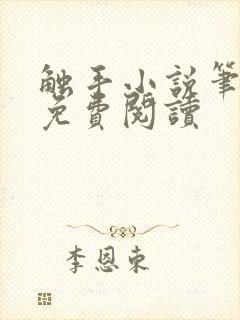 触手小说筆
免費閱讀
李恩東